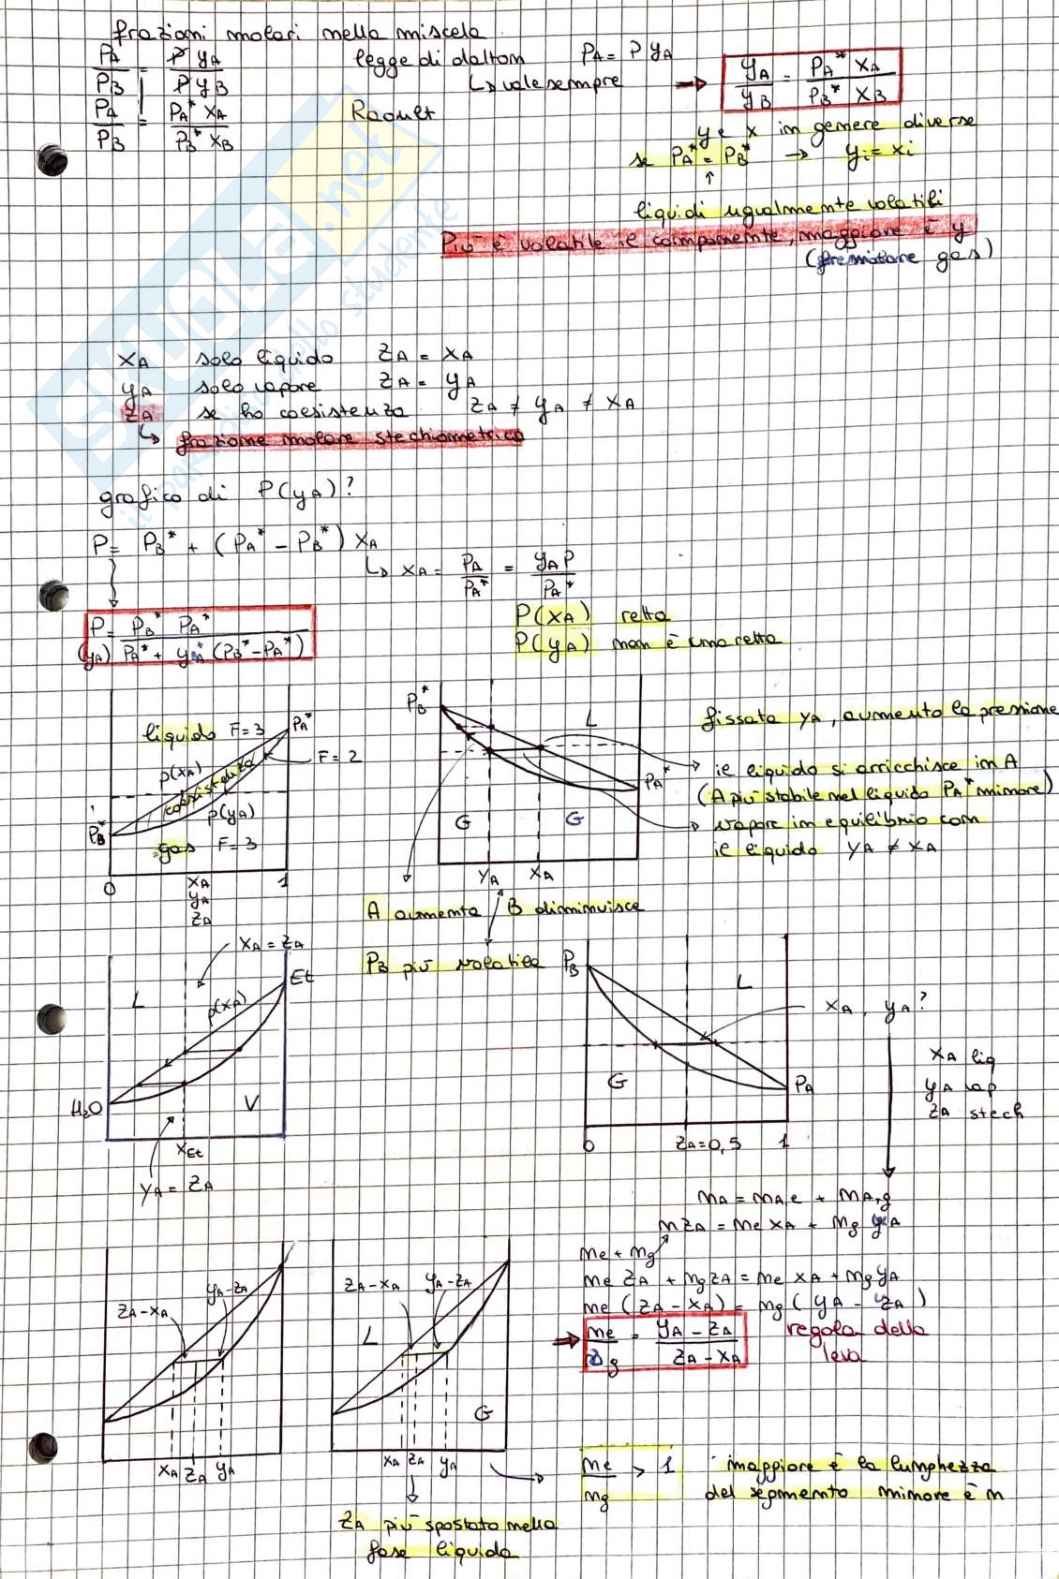 frazioni molari nella miscela
PA/PB = P yA / P yB
legge di dalton PA = P yA
↳ vale sempre
→ yA/yB = PA* xA / PB* xB
PA/PB = PA* xA / PB* xB
Raoult
y e x in genere diverse
se PA* = PB* → yi = xi
↑
liquidi ugualmente volatili
Più è volatile il componente, maggiore è y
(frazione gas)
xA solo liquido zA = xA
yA solo vapore zA = yA
zA se ho coesistenza zA ≠ yA ≠ xA
↳ frazione molare stechiometrica
grafico di P(yA)?
P = PB* + (PA* - PB*) xA
↳ xA = PA/PA* = yA P/PA*
P(yA) = PB* PA* / PA* + yA (PB* - PA*)
P(xA) retta
P(yA) non è una retta
liquido F=3
PA*
F=2
p(xA)
coesistenza
p(yA)
PB*
gas F=3
0 xA 1
yA
zA
PB*
L
PA*
G G
yA xA
fissata yA, aumento la pressione
→ il liquido si arricchisce in A
(A più stabile nel liquido PA* minore)
→ vapore in equilibrio con
il liquido yA ≠ xA
A aumenta / B diminuisce
PB più volatile
xA = zA
Et
L
p(xA)
H2O
V
xEt
yA = zA
PB
L
xA, yA?
G
PA
0 zA=0,5 1
xA liq
yA vap
zA stech
nA = nA,l + nA,g
n zA = nl xA + ng yA
nl + ng
nl zA + ng zA = nl xA + ng yA
nl (zA - xA) = ng (yA - zA)
⇒ nl/ng = yA - zA / zA - xA
regola della
leva
yA-zA
zA-xA
xA zA yA
zA-xA yA-zA
L
G
xA zA yA
nl/ng > 1
maggiore è la lunghezza
del segmento minore è n
zA più spostato nella
fase liquida
SKUOLA.net